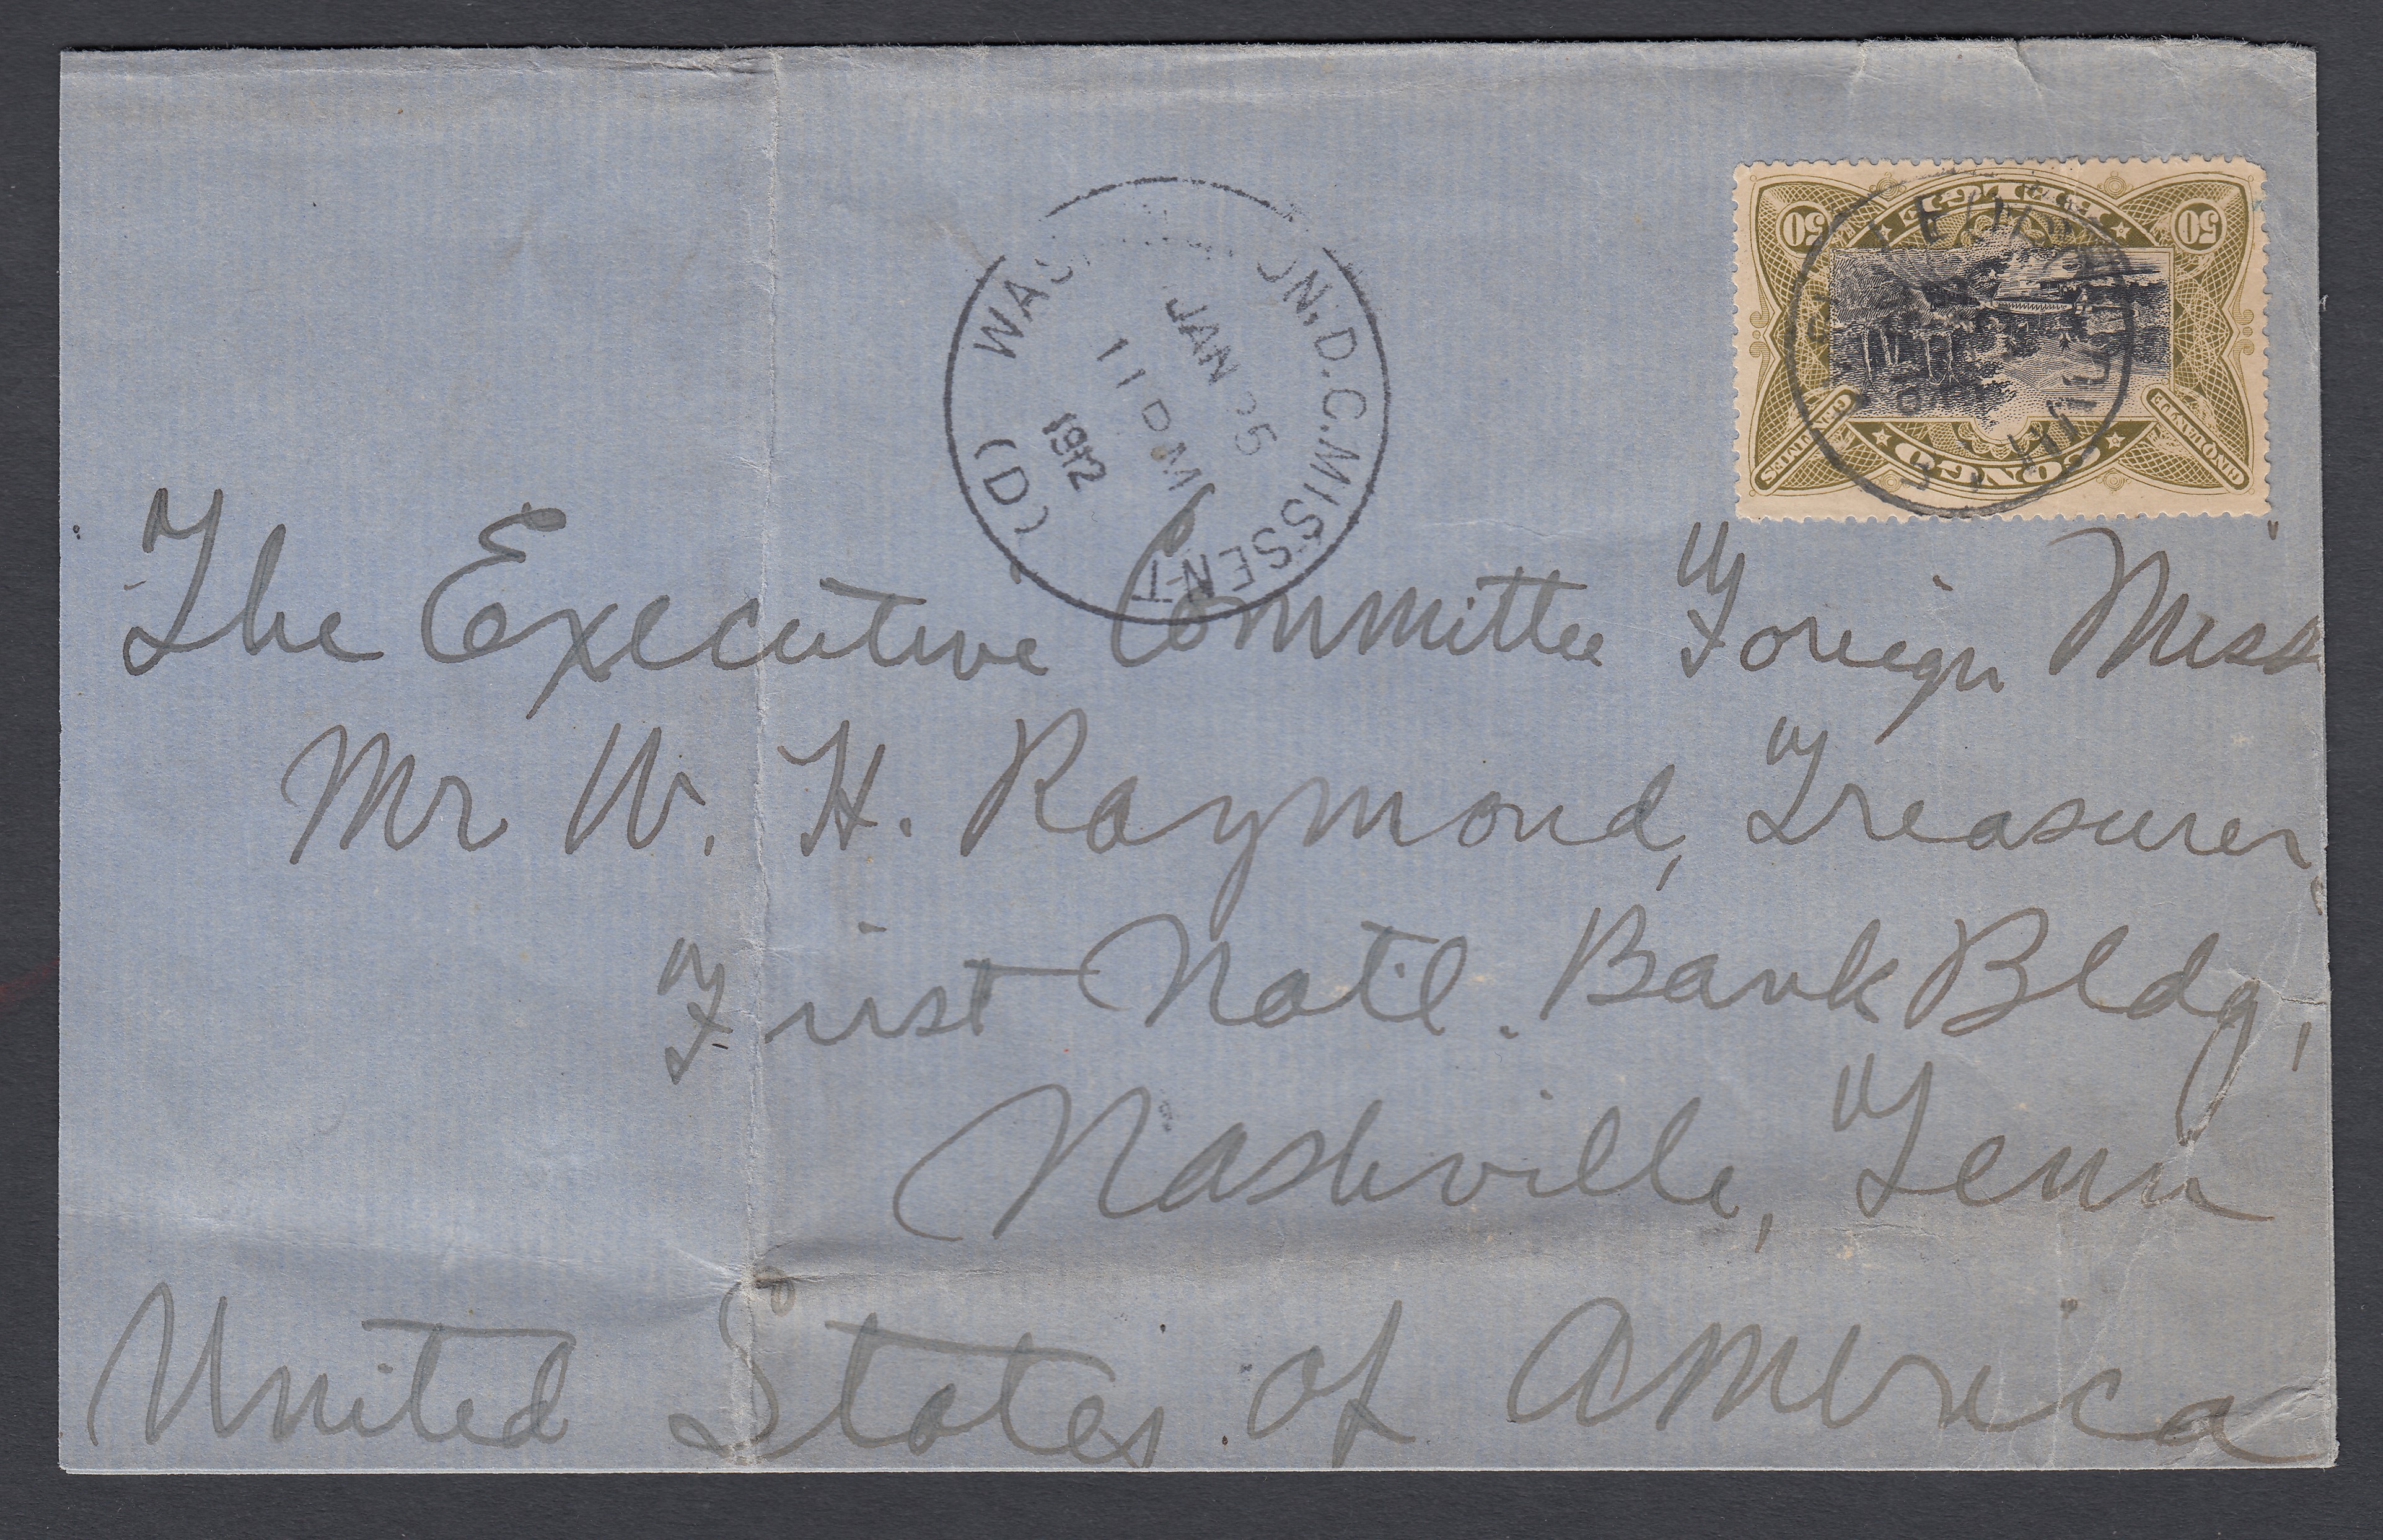 WAS ON, D.C. MISSENT (D)
JAN 25
11 PM
1912
50 50
CONGO
CENTIMES CINQUANTE
The Executive Committee Foreign Miss
Mr W. H. Raymond, Treasurer,
First Nat'l. Bank Bldg,
Nashville, Tenn
United States of America